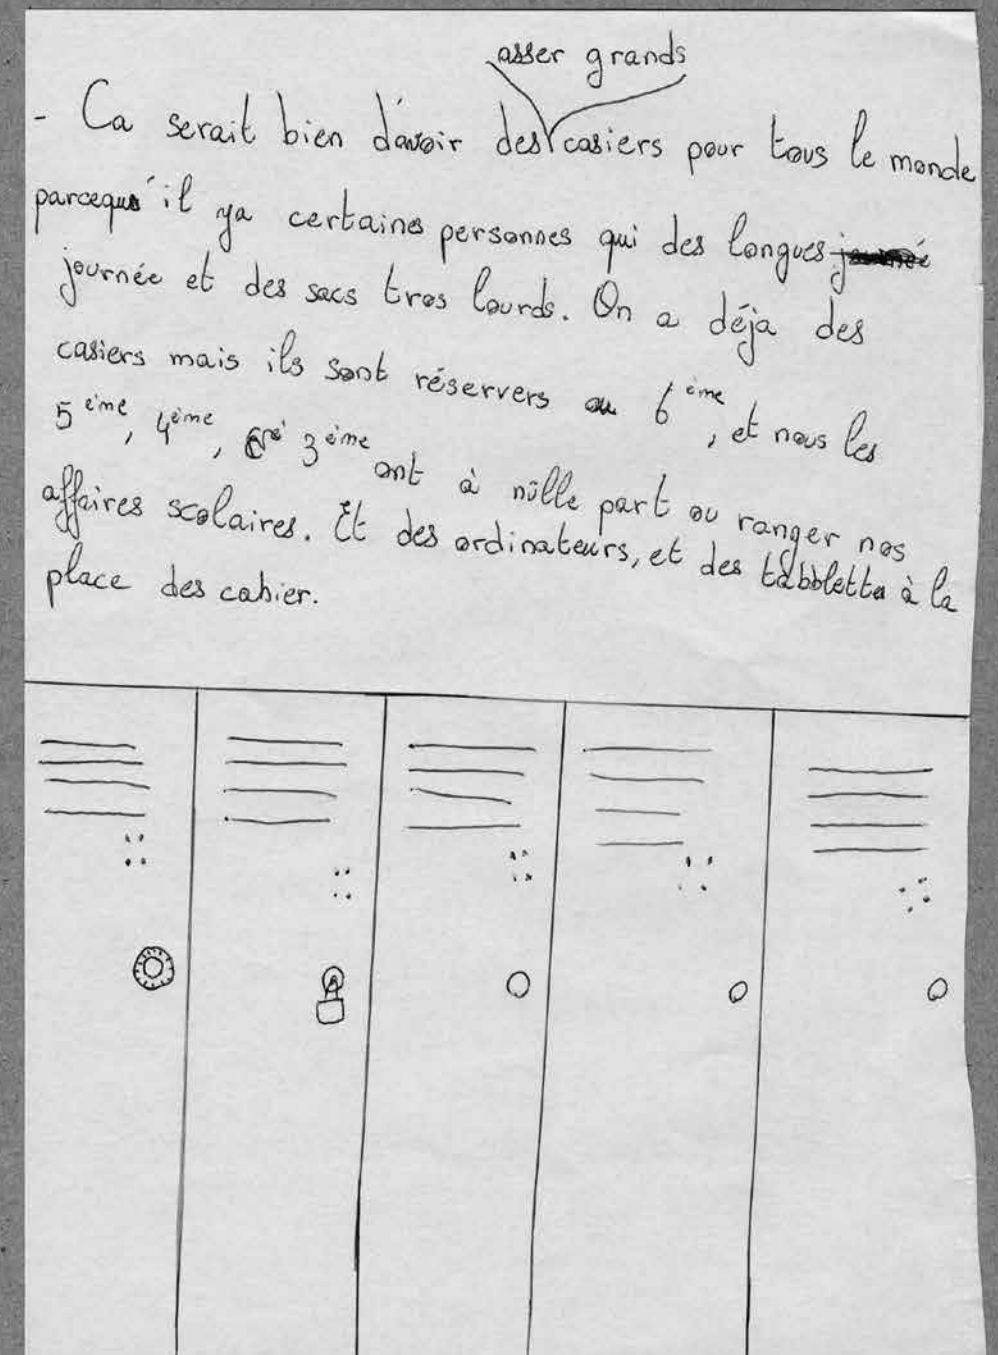 asser grands
- Ca serait bien d'avoir des casiers pour tous le monde
parceque il ya certaines personnes qui des longues
journée et des sacs tros lourds. On a déja des
casiers mais ils sont réservers au 6ème, et nous les
5ème, 4ème, 3ème ont à nûlle part ou ranger nos
affaires scolaires. Et des ordinateurs, et des tabblette à la
place des cahier.